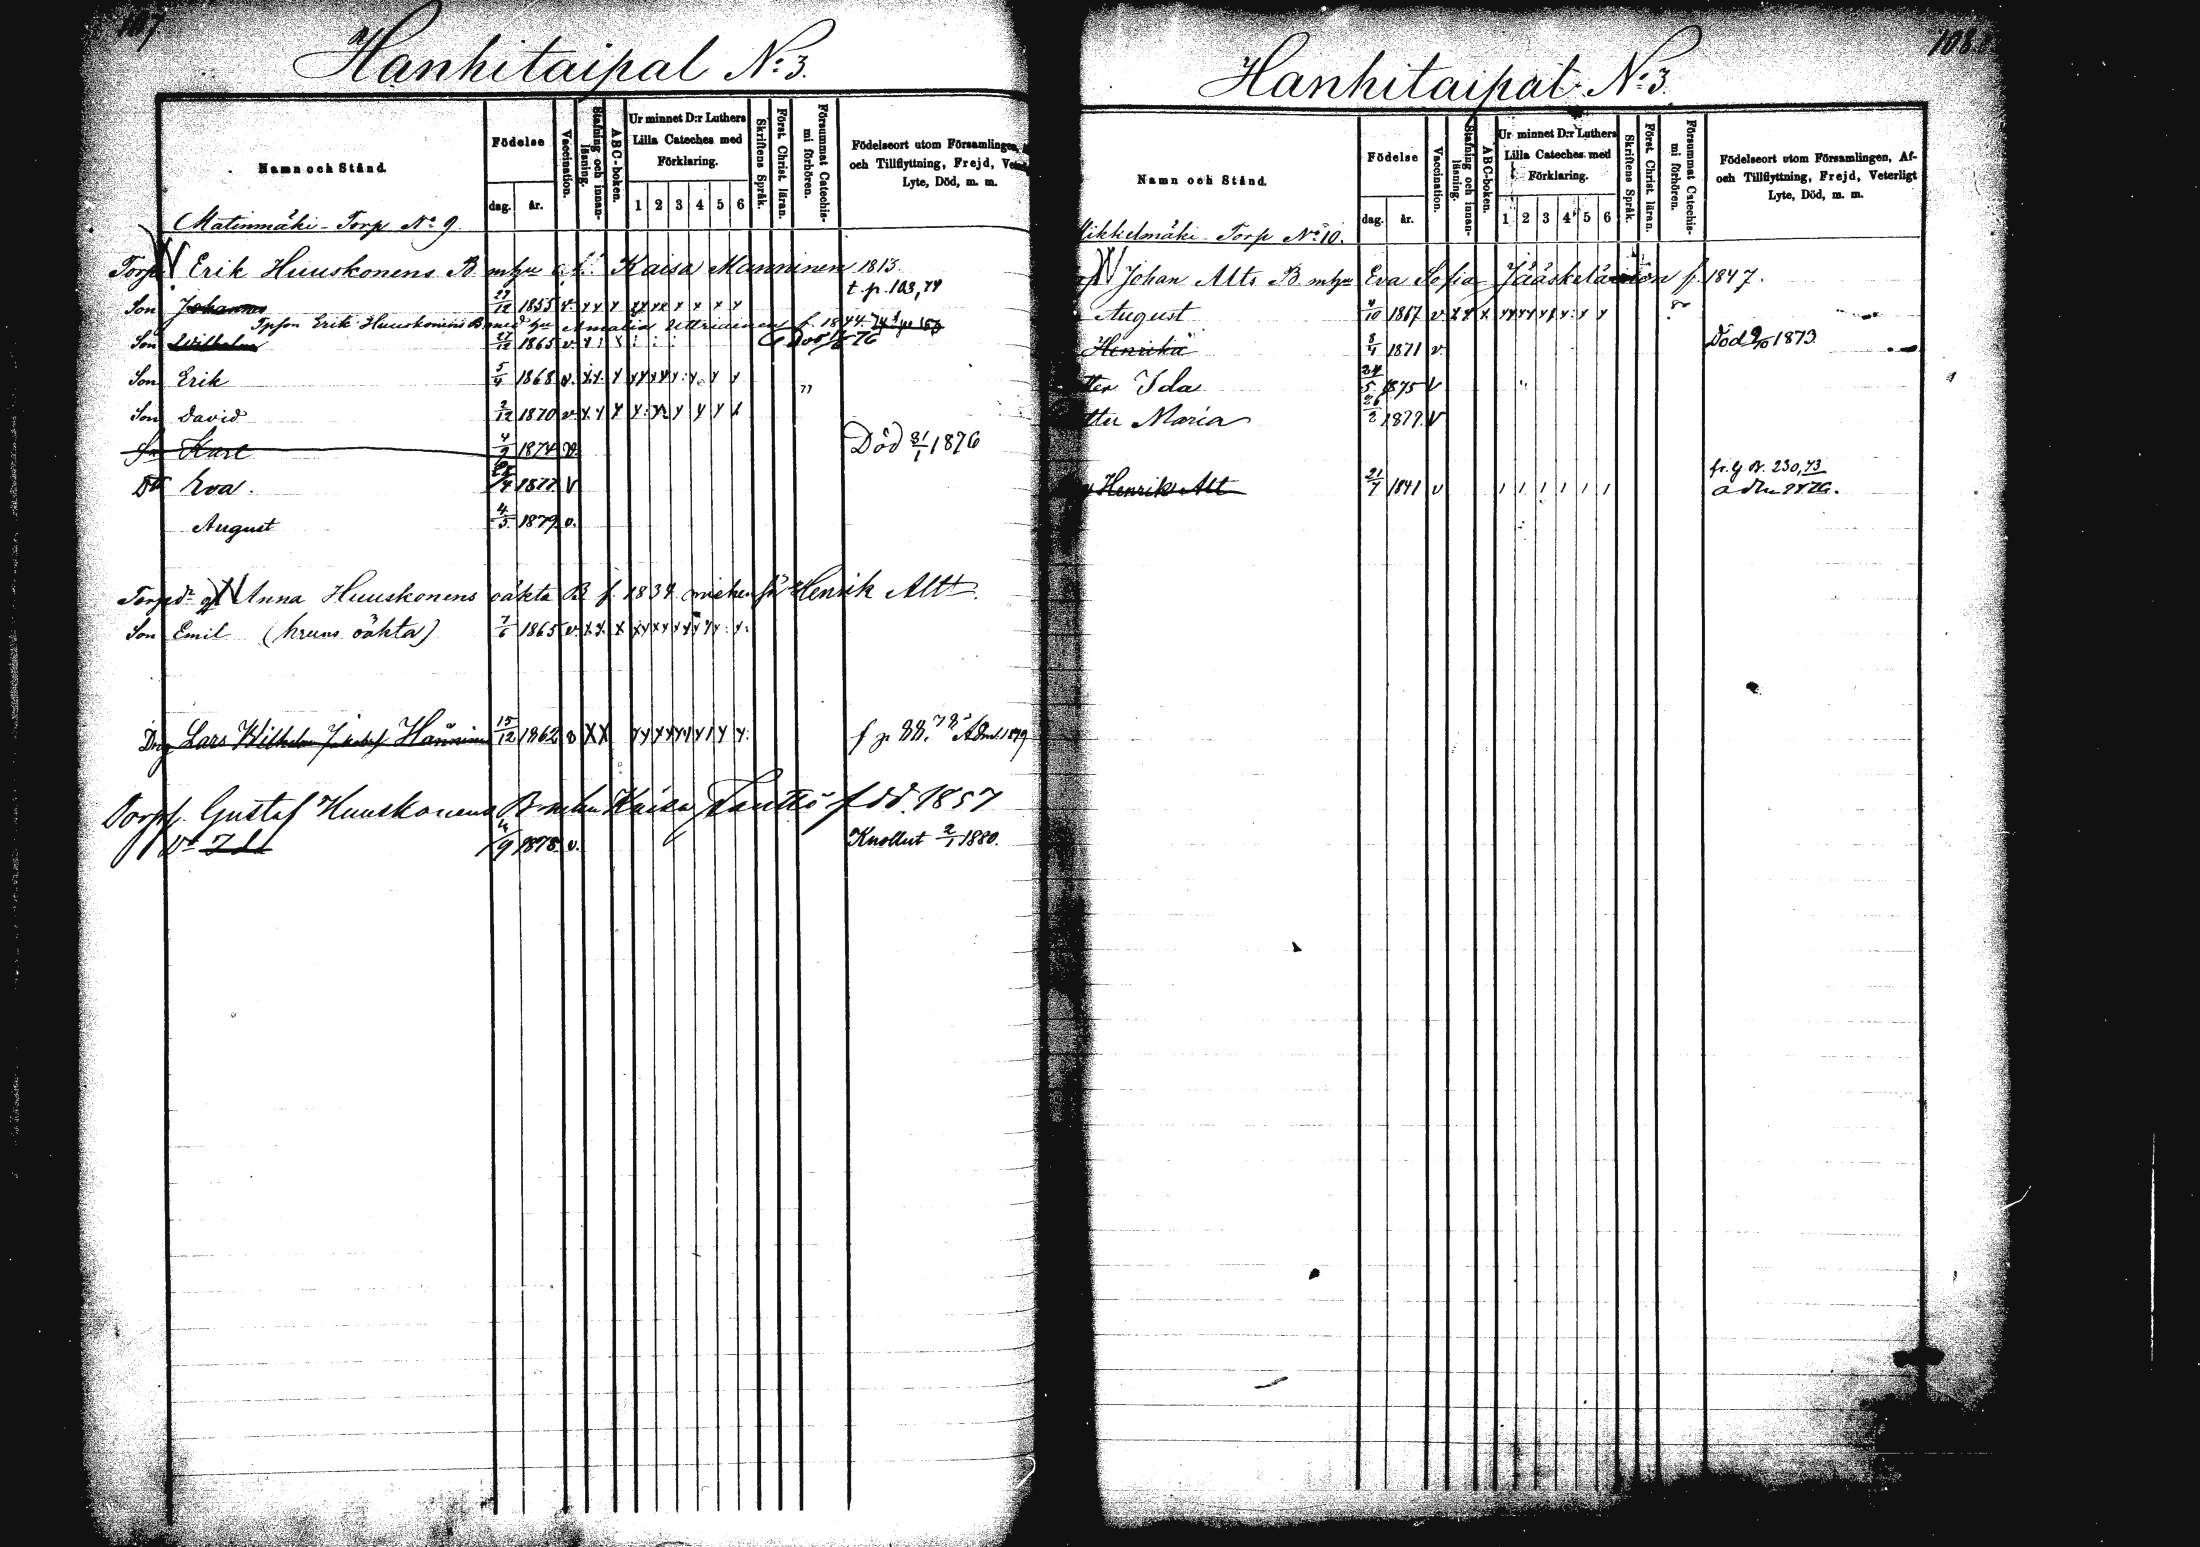 107
Hanhitaipal No 3.
Namn och Stånd.
Födelse
dag.
år.
Vaccination.
Stafning och innan-läsning.
ABC-boken.
Ur minnet D:r Luthers
Lilla Cateches med
Förklaring.
1 2 3 4 5 6
Skriftens Språk.
Först. Christ. läran.
Försummat Catechis-mi förhören.
Födelseort utom Församlingen,
och Tillflyttning, Frejd,
Lyte, Död, m. m.
Matinmäki Torp No 9.
Torp Erik Huuskonens B mhu Kaisa Manninen 1813
Son Johannes 1855 v. x x x x x x x x x x t. p. 103, 74
Tpson Erik Huuskonens B med hu Amalia Uttriainen f. 1844.
Son Wilhelm 25/12 1865 v.
Son Erik 5/4 1868 v. x x x x x x x x x x
Son David 2/12 1870 v. x x x x x x x x x
Karl 4/9 1874 v. Död 31/1 1876
Dtr Eva. 1877 v
August 4/5 1879 v.
Anna Huuskonens oäkta B f. 1834 Henrik Altt.
Son Emil (hruns oäkta) 7/6 1865 v. x x x x x x x x x x
Drg Lars Wilhelm Hänninen 15/12 1862 v x x f p. 88. 78 Adm 1879
Torpf. Gustaf Huuskonens B mhu Kaisa född. 1857
Dr Ida 9 1878 v. Knollut 2/1 1880.
108
Hanhitaipal No 3
Namn och Stånd.
Födelse
dag.
år.
Vaccination.
Stafning och innan-läsning.
ABC-boken.
Ur minnet D:r Luthers
Lilla Cateches med
Förklaring.
1 2 3 4 5 6
Skriftens Språk.
Först. Christ. läran.
Försummat Catechis-mi förhören.
Födelseort utom Församlingen, Af-
och Tillflyttning, Frejd, Veterligt
Lyte, Död, m. m.
ikkelmäki Torp No 10.
Johan Alts B mhu Eva Sofia Jääskeläinen f. 1847.
August 4/10 1867 v. x x x x x x x x x x
Henrika 3/4 1871 v. Död 9/10 1873
tter Ida 24/5 1875 v
tter Maria 26/2 1877 v
Henrik Alt 21/7 1841 v 1 1 1 1 1 1 230, 73